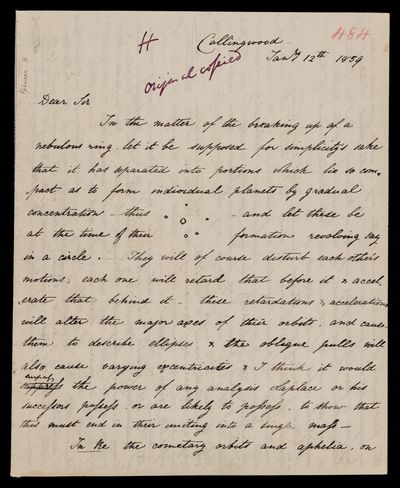 H
Collingwood
Jany 12th 1859
484
original copied
Dear Sir
In the matter of the breaking up of a
nebulous ring let it be supposed for simplicity's sake
that it has separated into portions which lie so com-
pact as to form individual planets by gradual
concentration - thus - and let these be
at the time of their formation revolving say
in a circle. They will of course disturb each other's
motions, each one will retard that before it & accel-
erate that behind it - these retardations & accelerations
will alter the major axes of their orbits, and cause
them to describe ellipses & the oblique pulls will
also cause varying excentricities & I think it would
surpass the power of any analysis Laplace or his
successors possess, or are likely to possess, to show that
this must end in their uniting into a single mass -
In Re the cometary orbits and aphelia, on